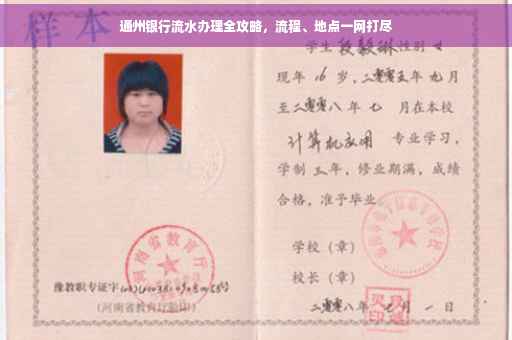 通州银行流水办理全攻略，流程、地点一网打尽
样本
学生段毅琳性别女
现年16岁，二零零五年九月
至二零零八年七月在本校
计算机应用 专业学习，
学制三年，修业期满，成绩
合格，准予毕业
学校（章）
校长（章）
二零零八年 月一日
河南省教育厅
豫教职专证字
（河南省教育厅验印）